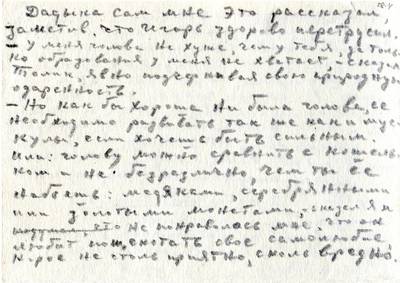 Дадыка сам мне это рассказал,
заметив, что Игорь здорово перетрусил.
- У меня голова не хуже, чем у тебя, да толь
ко образования у меня не хватает, - сказал
Толик, явно подчеркивая свою природную
одаренность.
- Но как бы хороша ни была голова, ее
необходимо развивать так же как и мус
кулы, если хочешь быть сильным.
Или: голову можно сравнить с кошель
ком и не безразлично, чем ты ее
набьешь: медяками, серебрянными
или золотыми монетами, - сказал я
это не понравилось мне, что он
любит пощекотать свое самолюбие,
кᴏрое не столь приятно, сколь вредно.